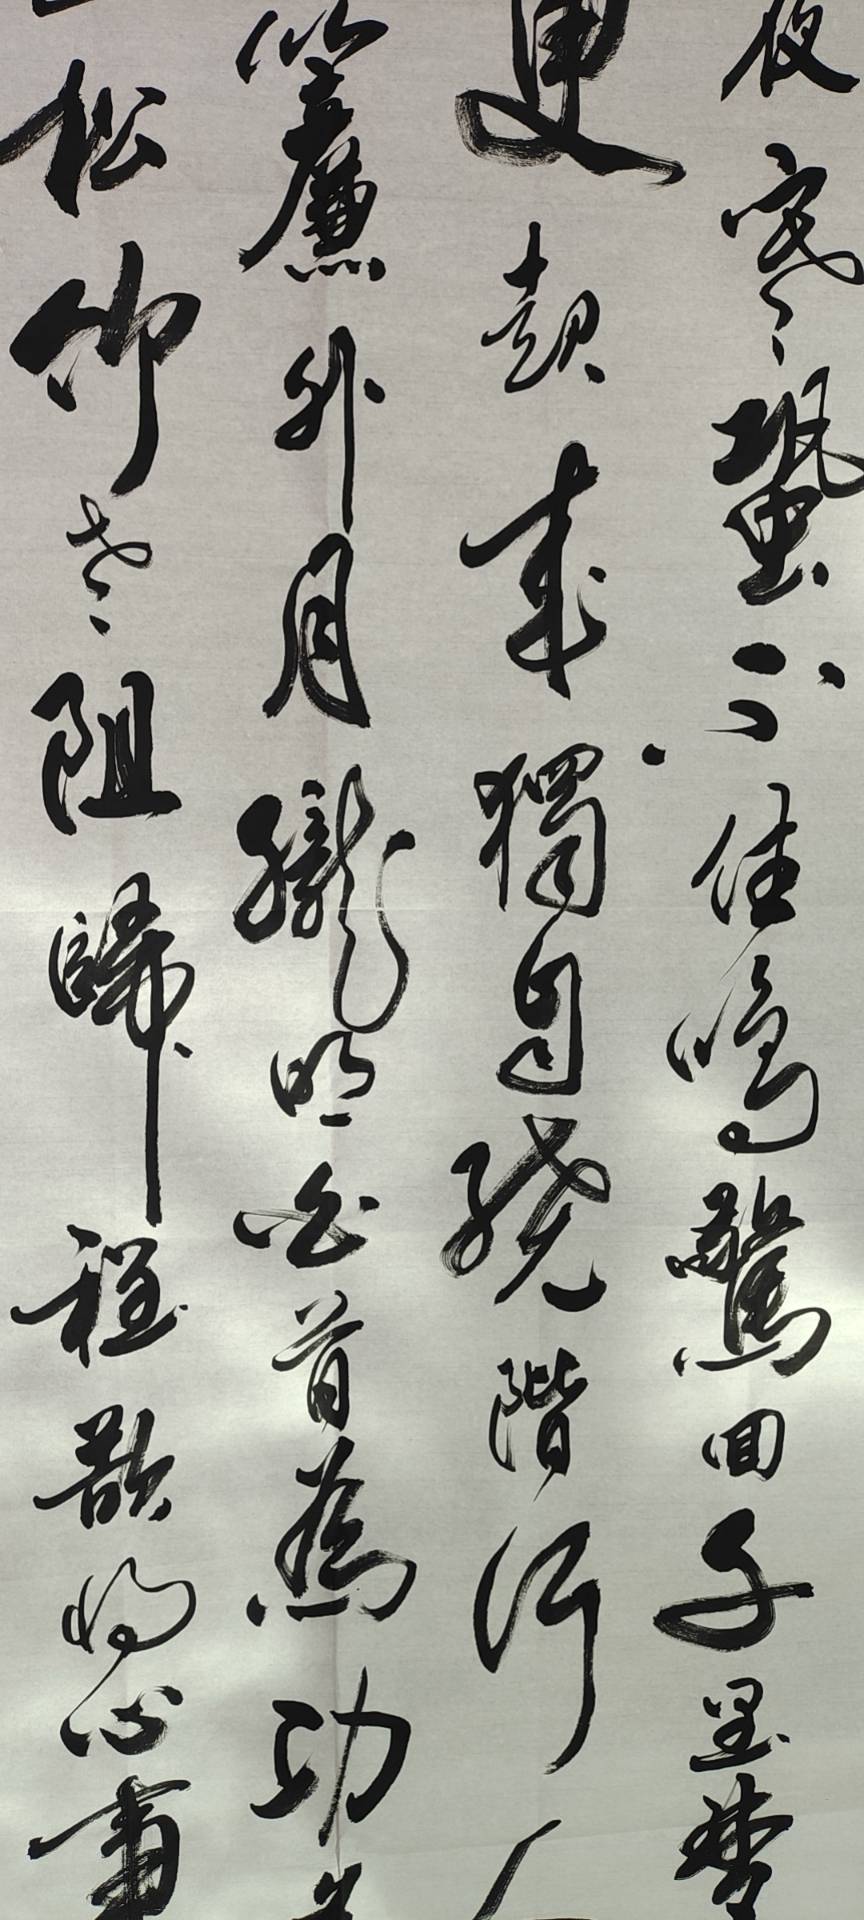 夜寒蛩不住鳴驚回千里夢
更起來獨自繞階行人
簾外月朧明白首為功名
松竹老阻歸程欲將心事